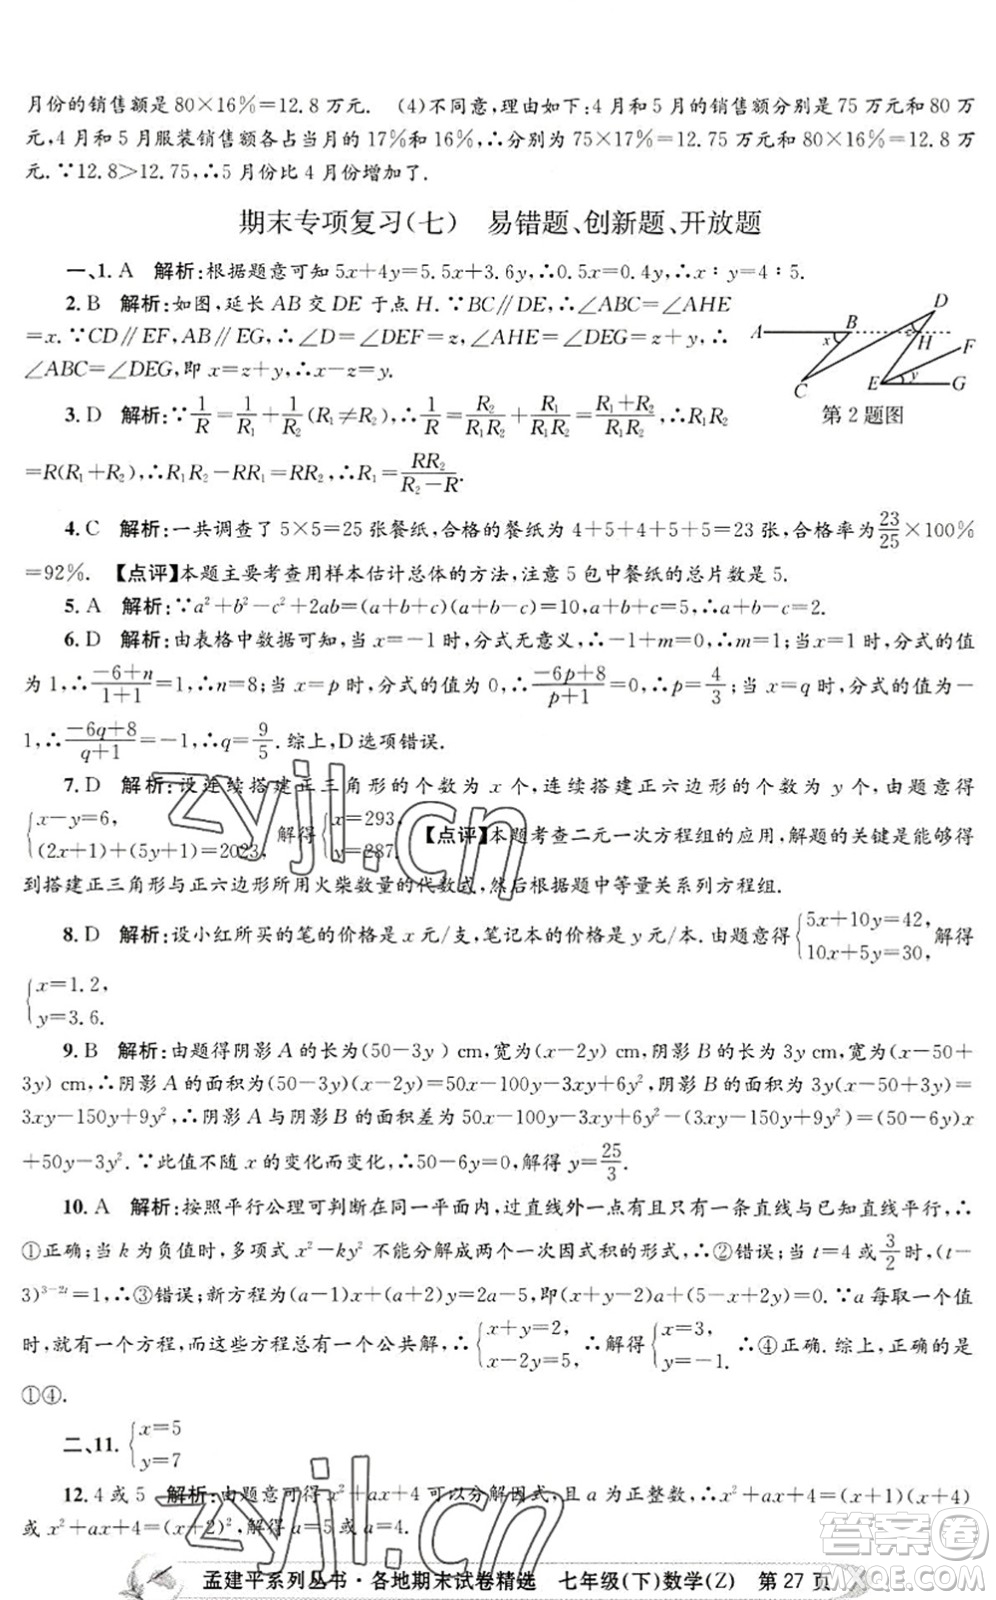 月份的销售额是 80×16%=12.8 万元. (4)不同意,理由如下:4 月和 5 月的销售额分别是 75 万元和 80 万
元,4 月和 5 月服装销售额各占当月的 17%和 16%,∴分别为 75×17%=12.75 万元和 80×16%=12.8 万
元.∵12.8>12.75,∴5 月份比 4 月份增加了.
期末专项复习(七) 易错题、创新题、开放题
一、1. A 解析:根据题意可知 5x+4y=5.5x+3.6y,∴0.5x=0.4y,∴x∶y=4∶5.
2. B 解析:如图,延长 AB 交 DE 于点 H.∵BC∥DE,∴∠ABC=∠AHE
=x.∵CD∥EF,AB∥EG,∴∠D=∠DEF=z,∠AHE=∠DEG=z+y,∴
∠ABC=∠DEG,即 x=z+y.
A B D H F x C E y G
第 2 题图
3. D 解析:∵1/R=1/R₁+1/R₂(R₁≠R₂),∴1/R=R₂/R₁R₂+R₁/R₁R₂=(R₁+R₂)/R₁R₂,∴R₁R₂
=R(R₁+R₂),∴R₁R₂−RR₁=RR₂,∴R₁=RR₂/(R₂−R).
4. C 解析:一共调查了 5×5=25 张餐纸,合格的餐纸为 4+5+4+5+5=23 张,合格率为23/25×100%
=92%. 【点评】本题主要考查用样本估计总体的方法,注意 5 包中餐纸的总片数是 5.
5. A 解析:∵a²+b²−c²+2ab=(a+b+c)(a+b−c)=10,a+b+c=5,∴a+b−c=2.
6. D 解析:由表格中数据可知,当 x=−1 时,分式无意义,∴−1+m=0,∴m=1;当 x=1 时,分式的值
为 1,∴(−6+n)/(1+1)=1,∴n=8;当 x=p 时,分式的值为 0,∴(−6p+8)/(p+1)=0,∴p=4/3;当 x=q 时,分式的值为−
1,∴(−6q+8)/(q+1)=−1,∴q=9/5.综上,D 选项错误.
7. D 解析:设连续搭建正三角形的个数为 x 个,连续搭建正六边形的个数为 y 个. 由题意得
{x−y=6, (2x+1)+(5y+1)=2023, 解得{x=293, y=287. 【点评】本题考查二元一次方程组的应用,解题的关键是能够得
到搭建正三角形与正六边形所用火柴数量的代数式,然后根据题中等量关系列方程组.
8. D 解析:设小红所买的笔的价格是 x 元/支,笔记本的价格是 y 元/本. 由题意得{5x+10y=42, 10x+5y=30, 解得
{x=1.2, y=3.6.
9. B 解析:由题得阴影 A 的长为(50−3y) cm,宽为(x−2y) cm,阴影 B 的长为 3y cm,宽为(x−50+
3y) cm,∴阴影 A 的面积为(50−3y)(x−2y)=50x−100y−3xy+6y²,阴影 B 的面积为 3y(x−50+3y)=
3xy−150y+9y²,∴阴影 A 与阴影 B 的面积差为 50x−100y−3xy+6y²−(3xy−150y+9y²)=(50−6y)x
+50y−3y².∵此值不随 x 的变化而变化,∴50−6y=0,解得 y=25/3.
10. A 解析:按照平行公理可判断在同一平面内,过直线外一点有且只有一条直线与已知直线平行,∴
①正确;当 k 为负值时,多项式 x²−ky² 不能分解成两个一次因式积的形式,∴②错误;当 t=4或3/2时,(t−
3)³⁻²ᵗ=1,∴③错误;新方程为(a−1)x+(a+2)y=2a−5,即(x+y−2)a+(5−x+2y)=0.∵a 每取一个值
时,就有一个方程,而这些方程总有一个公共解,∴{x+y=2, x−2y=5, ∴解得{x=3, y=−1. ∴④正确.综上,正确的是
①④.
二、11. {x=5 y=7
12. 4 或 5 解析:由题意可得 x²+ax+4 可以分解因式,且 a 为正整数,∴x²+ax+4=(x+1)(x+4)
或 x²+ax+4=(x+2)²,解得 a=5 或 a=4.
孟建平系列丛书·各地期末试卷精选 七年级(下)数学(Z) 第 27 页
zyjl.cn
zyjl.cn
答案圈
MXQE.COM